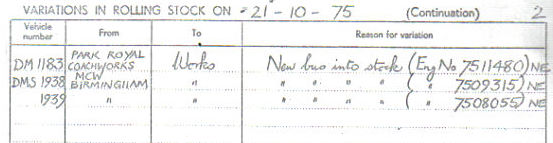 VARIATIONS IN ROLLING STOCK ON 21 - 10 - 75 (Continuation) 2
Vehicle number From To Reason for variation
DM 1183 PARK ROYAL COACHWORKS Works New bus into stock (Eng No 7511480) NE
DMS 1938 MCW BIRMINGHAM " " " " " ( " 7509315) NE
1939 " " " " " " ( " 7508055) NE